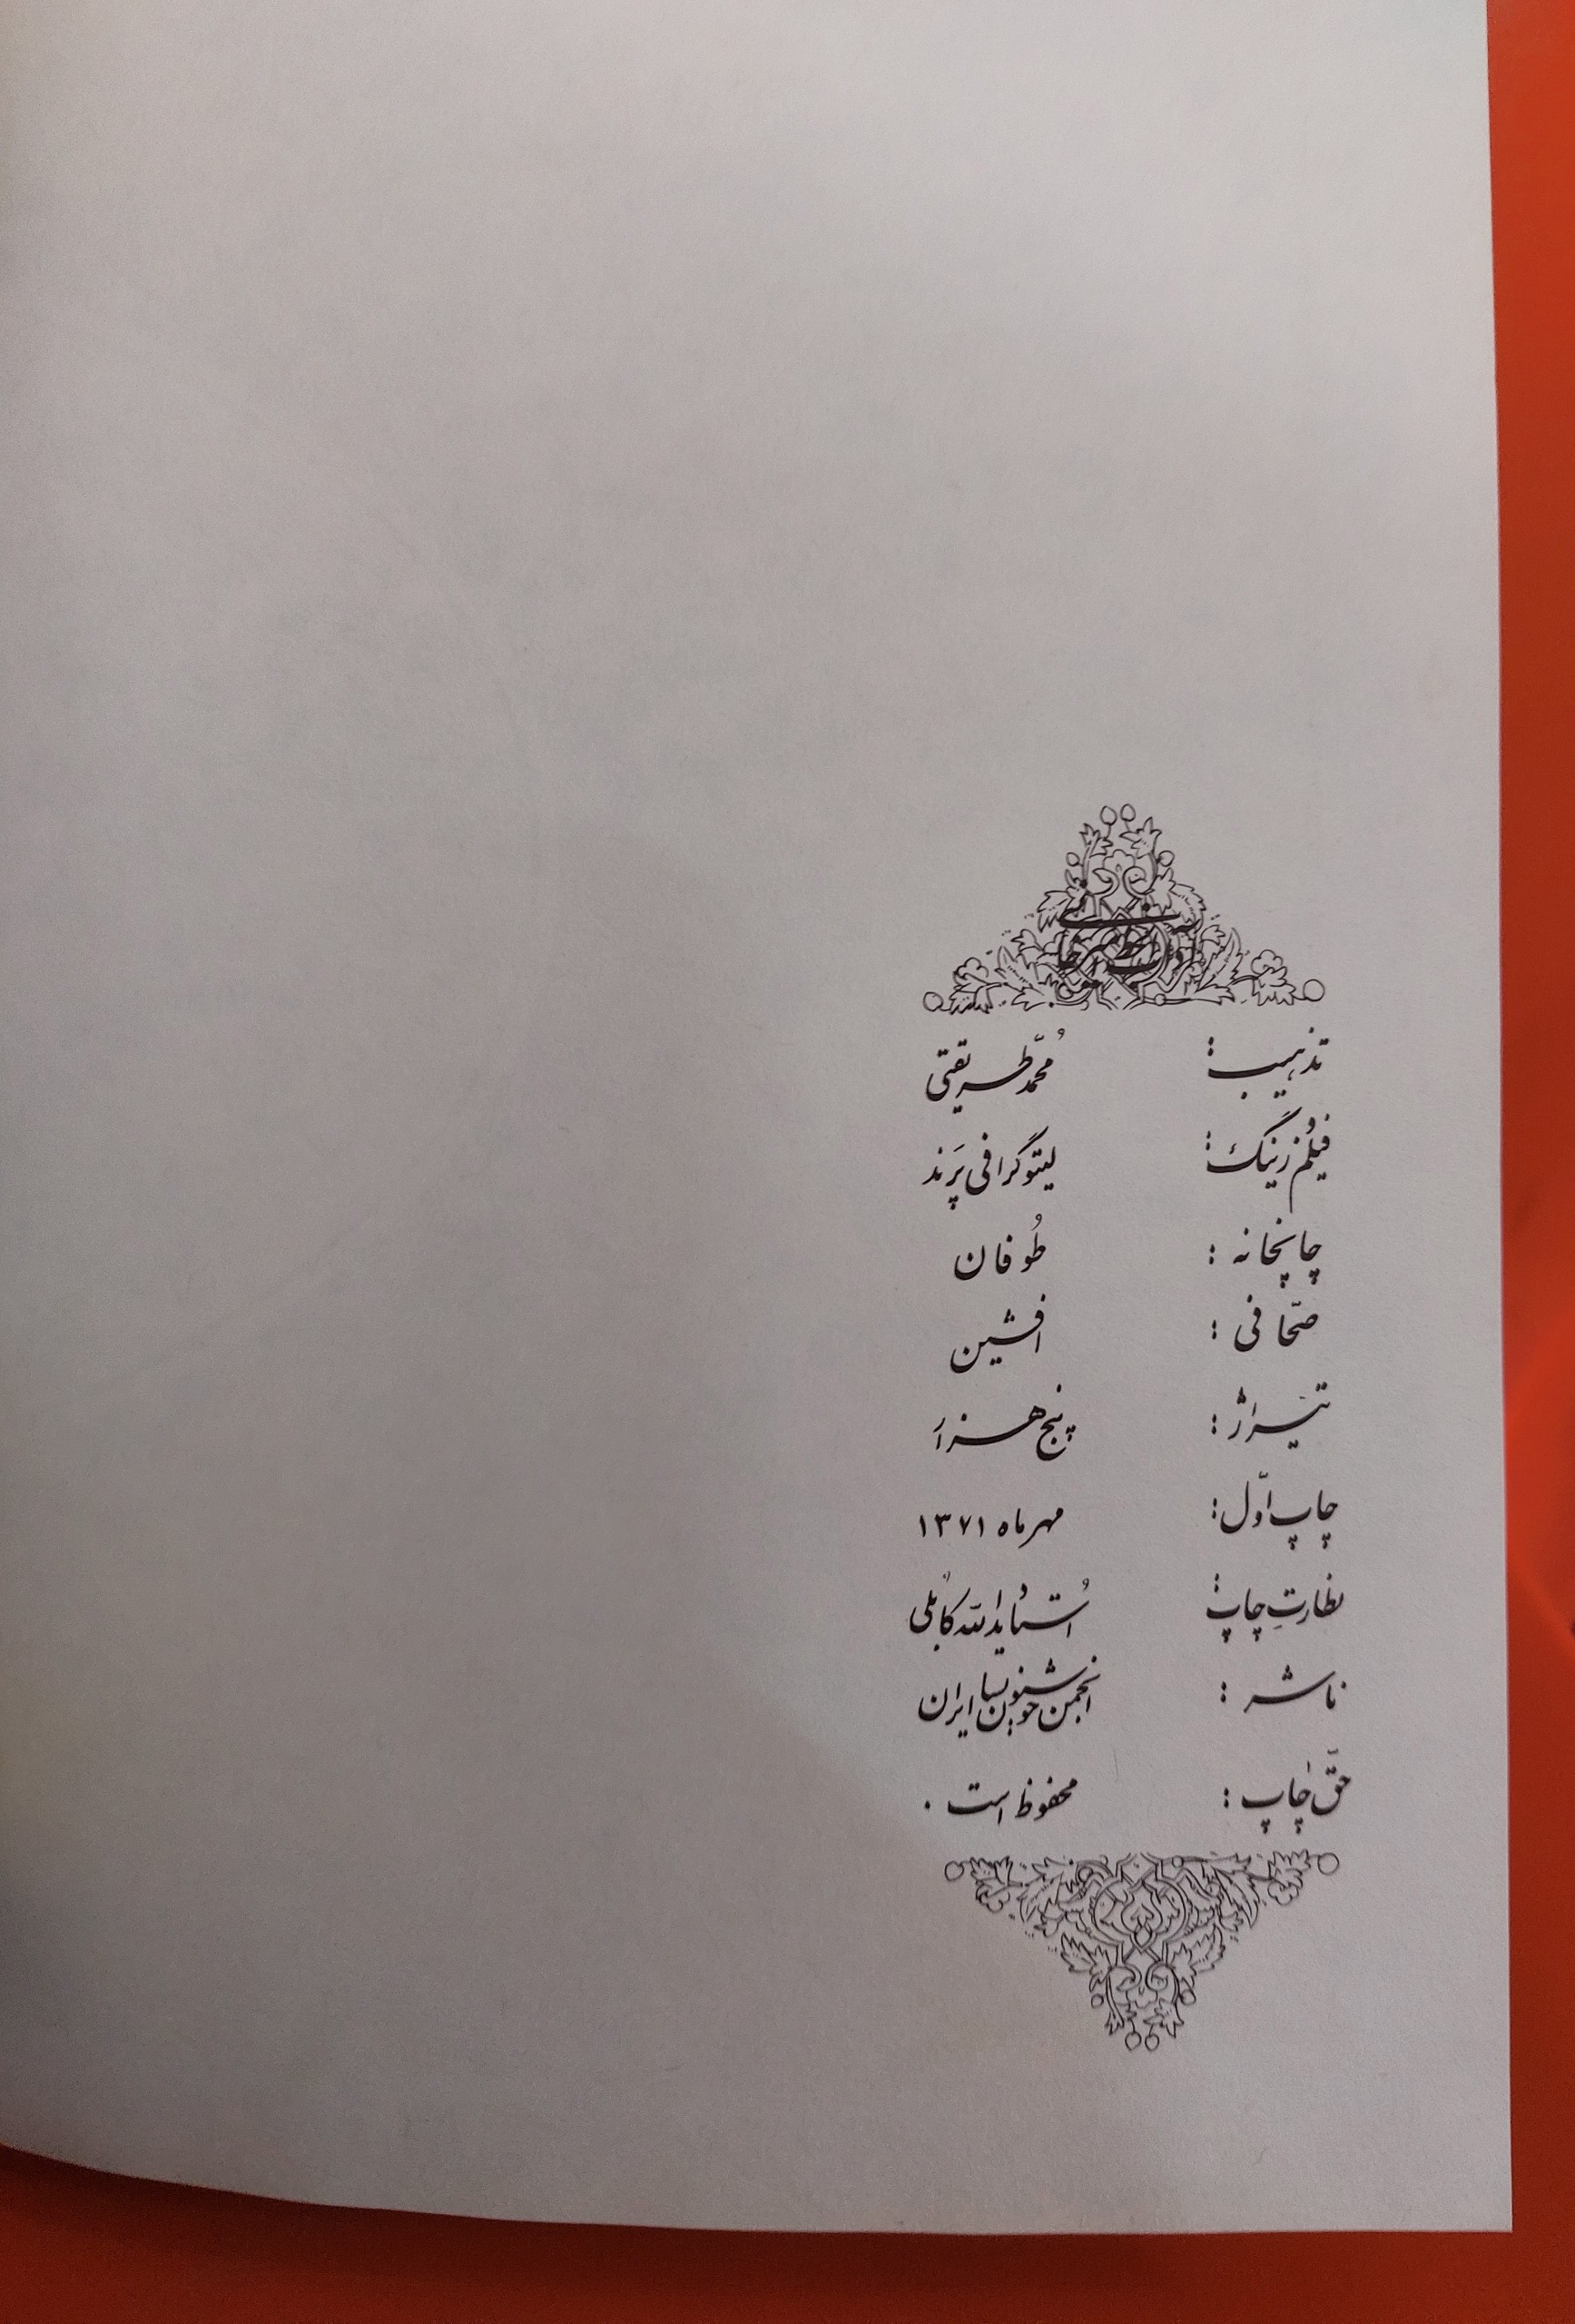 تذهیب: محمّد طریقتی
فیلم زینگ: لیتوگرافی پَرند
چاپخانه: طُوفان
صحّافی: افشین
تیراژ: پنج هزار
چاپ اوّل: مهرماه ۱۳۷۱
نظارتِ چاپ: اُستاد یدالله کابُلی
ناشر: انجمن خوشنویسان ایران
حقّ چاپ: محفوظ است.